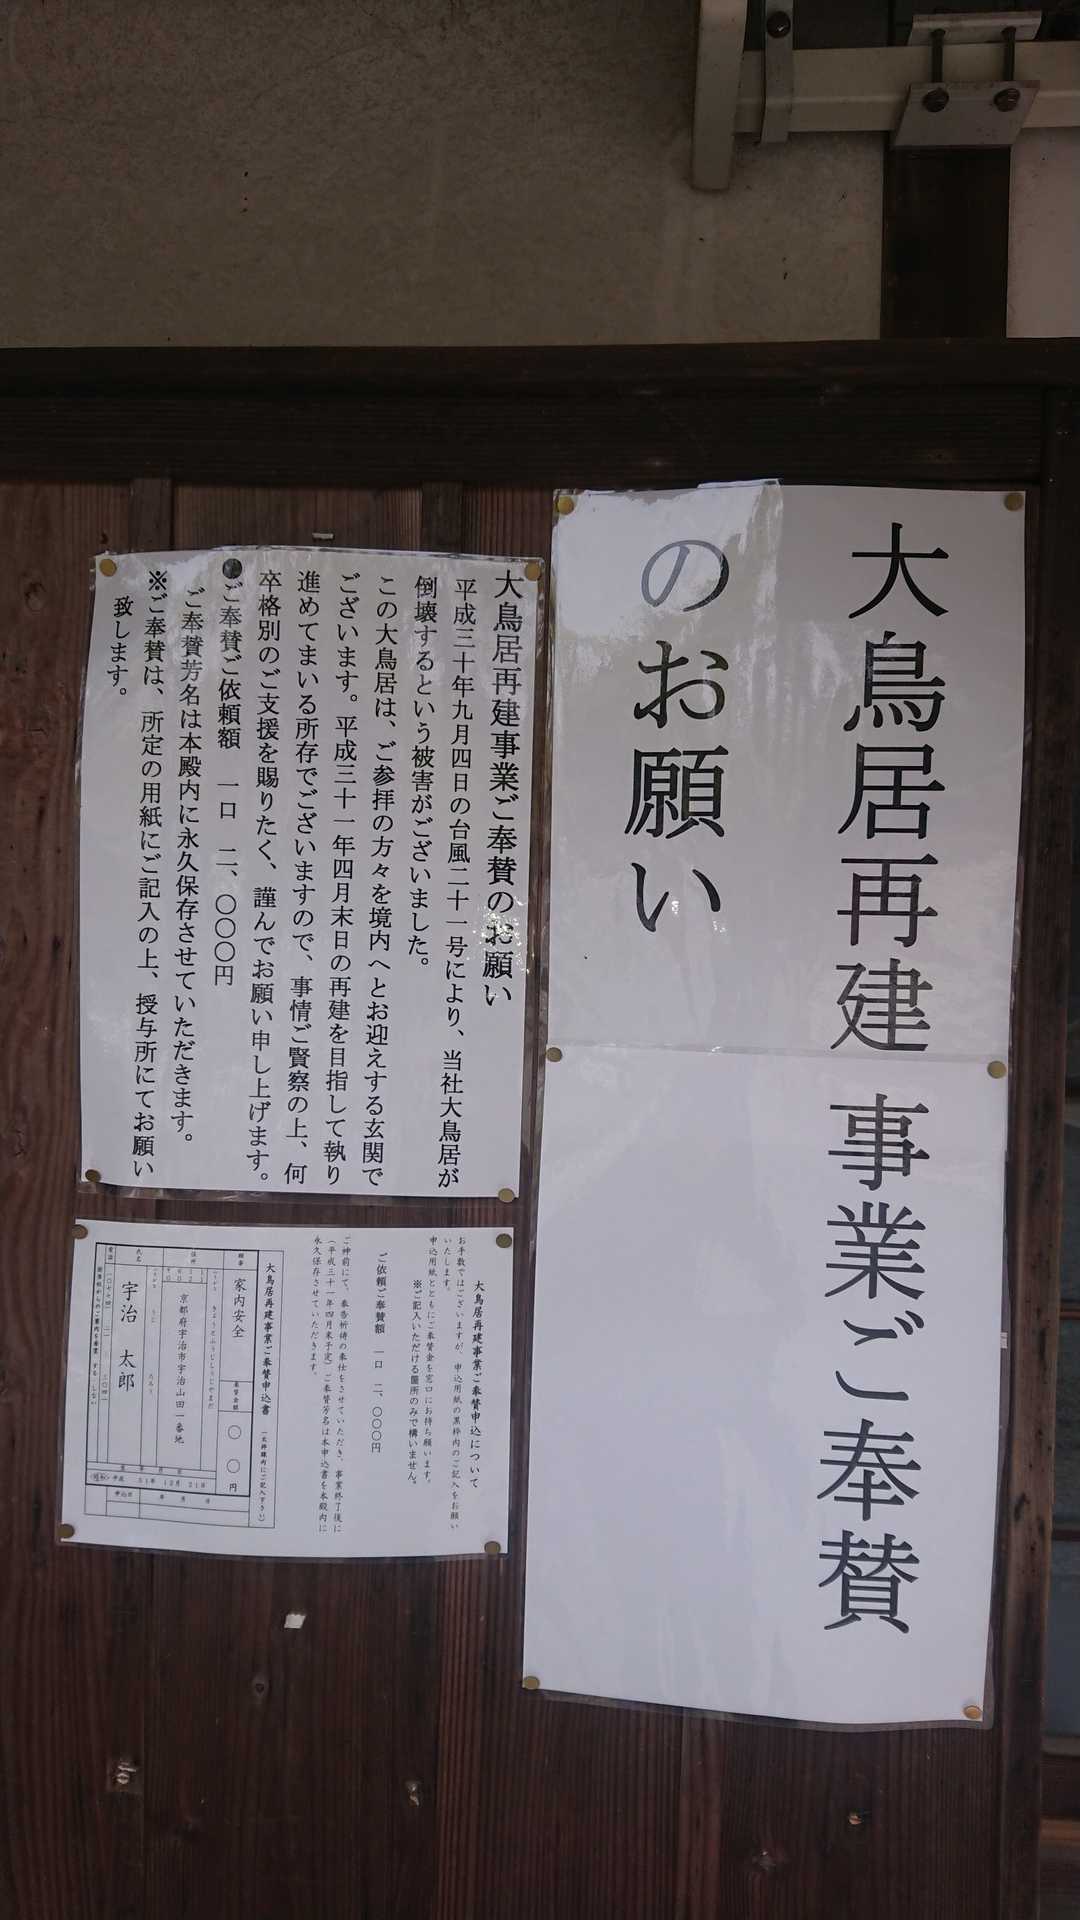 大鳥居再建事業ご奉賛
のお願い
大鳥居再建事業ご奉賛のお願い
平成三十年九月四日の台風二十一号により、当社大鳥居が
倒壊するという被害がございました。
この大鳥居は、ご参拝の方々を境内へとお迎えする玄関で
ございます。平成三十一年四月末日の再建を目指して執り
進めてまいる所存でございますので、事情ご賢察の上、何
卒格別のご支援を賜りたく、謹んでお願い申し上げます。
●ご奉賛ご依頼額 一口 二、〇〇〇円
ご奉賛芳名は本殿内に永久保存させていただきます。
※ご奉賛は、所定の用紙にご記入の上、授与所にてお願い
致します。
大鳥居再建事業ご奉賛申込について
お手数ではございますが、申込用紙の黒枠内のご記入をお願い
いたします。
申込用紙とともにご奉賛金を窓口にお持ち願います。
※ご記入いただける箇所のみで構いません。
ご依頼ご奉賛額 一口 二、〇〇〇円
ご神前にて、奉告祈祷の奉仕をさせていただき、事業終了後に
(平成三十一年四月末予定)ご奉賛芳名は本申込書を本殿内に
永久保存させていただきます。
大鳥居再建事業ご奉賛申込書 (太枠線内にご記入下さい)
願事 家内安全 奉賛金額 〇〇円
ふりがな きょうとふうじしうじやまだ
住所 京都府宇治市宇治山田一番地
ふりがな うじ たろう
氏名 宇治 太郎
昭和 平成 51年 12月 21日
申込日 年 月 日